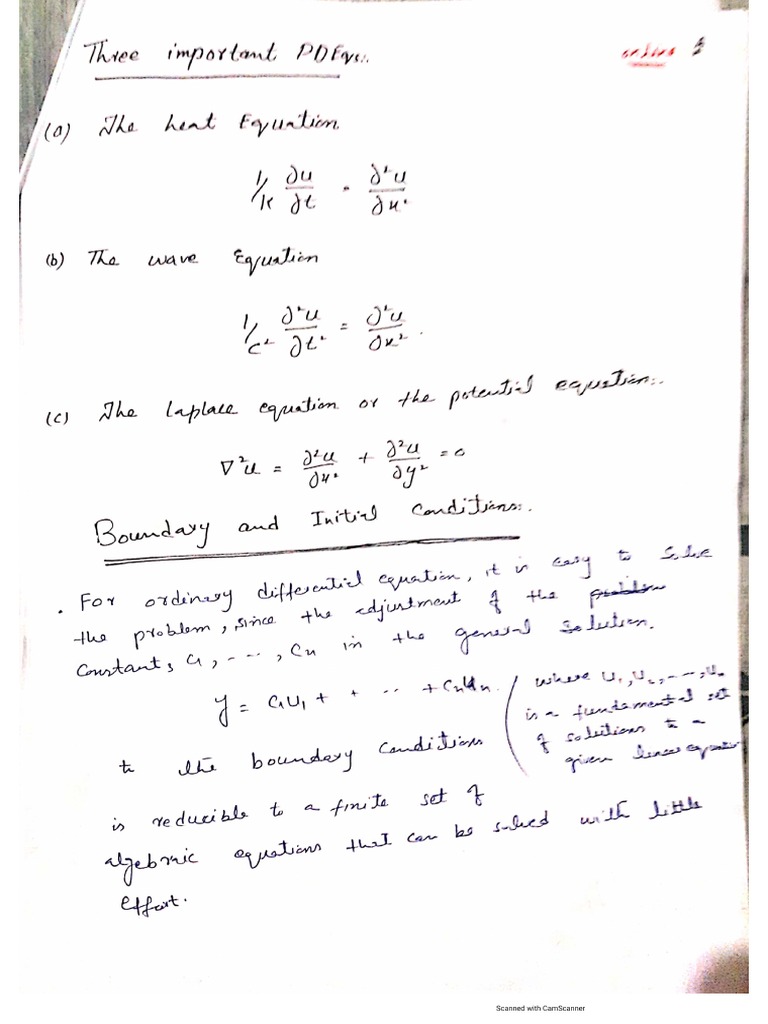 Three important PDEqs:.
(a) The heat Equation.
1/k ∂u/∂t = ∂²u/∂x²
(b) The wave Equation
1/c² ∂²u/∂t² = ∂²u/∂x².
(c) The laplace equation or the potential equation:.
∇²u = ∂²u/∂x² + ∂²u/∂y² = 0
Boundary and Initial Conditions:.
. For ordinary differential equation, it is easy to solve
the problem, since the adjustment of the
constants c₁, ---, cₙ in the general solution.
y = c₁u₁ + + -- + cₙuₙ. (where u₁, u₂, ---, uₙ
is a fundamental set
of solutions to a
given linear equation
to the boundary conditions
is reducible to a finite set of
algebraic equations that can be solved with little
effort.
Scanned with CamScanner